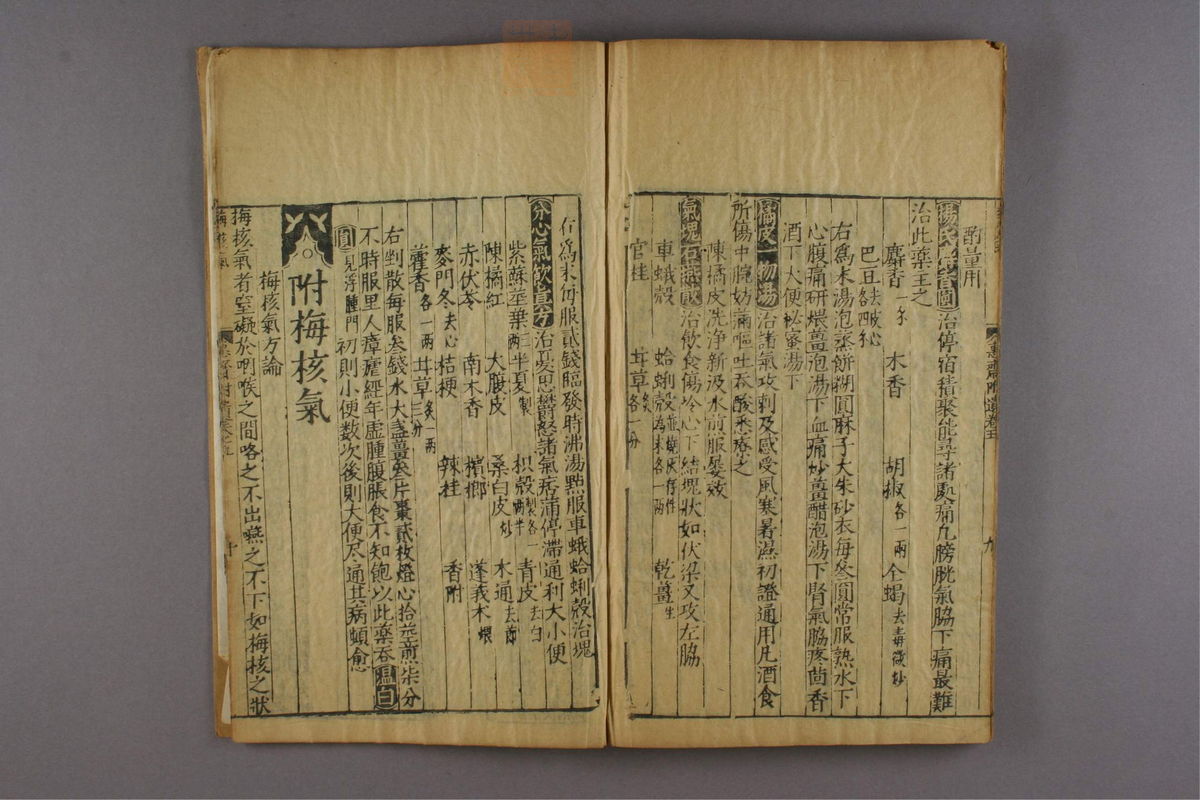 酌量用
楊氏麝香圓治停宿積聚能㝷諸處痛凡膀胱氣脇下痛最難
治此藥主之
麝香一錢 木香 胡椒各一兩 全蝎去毒微炒
巴豆去皮各四
右為末湯泡蒸餅糊圓麻子大朱砂衣每叁圓常服熟水下
心腹痛研煨薑泡湯下血痛炒薑醋泡湯下腎氣脇疼茴香
酒下大便秘蜜湯下
橘皮一物湯治諸氣攻刺及感受風寒暑濕初證通用凡酒食
所傷中脘妨滿嘔吐吞酸悉療之
陳橘皮洗淨新汲水煎服屢效
氣塊石燕散治飲食傷冷心下結塊狀如伏梁又攻左脇
車蛾殻 蛤蜊殻並燒灰存性為末各一兩 乾薑生
官桂 甘草炙各一分
右為末每服貳錢臨發時沸湯點服車蛾蛤蜊殻治塊
分心氣飲真方治憂思鬱怒諸氣痞滿停滯通利大小便
紫蘇莖葉三兩 半夏製 枳殻製各一兩半 青皮去白
陳橘紅 大腹皮 桑白皮炒 木通去節
赤茯苓 南木香 檳榔 蓬莪朮煨
麥門冬去心 桔梗 辣桂 香附
藿香各一兩 甘草炙一兩三分
右剉散每服叁錢水大盞薑叁片棗貳枚燈心拾莖煎柴分
不時服里人瘴瘧經年虛腫腹脹食不知飽以此藥吞溫白
圓見浮腫門初則小便數次後則大便尽通其病頓愈
八 附梅核氣
梅核氣方論
梅核氣者窒礙於咽喉之間咯之不出嚥之不下如梅核之狀
梅核氣
九
十